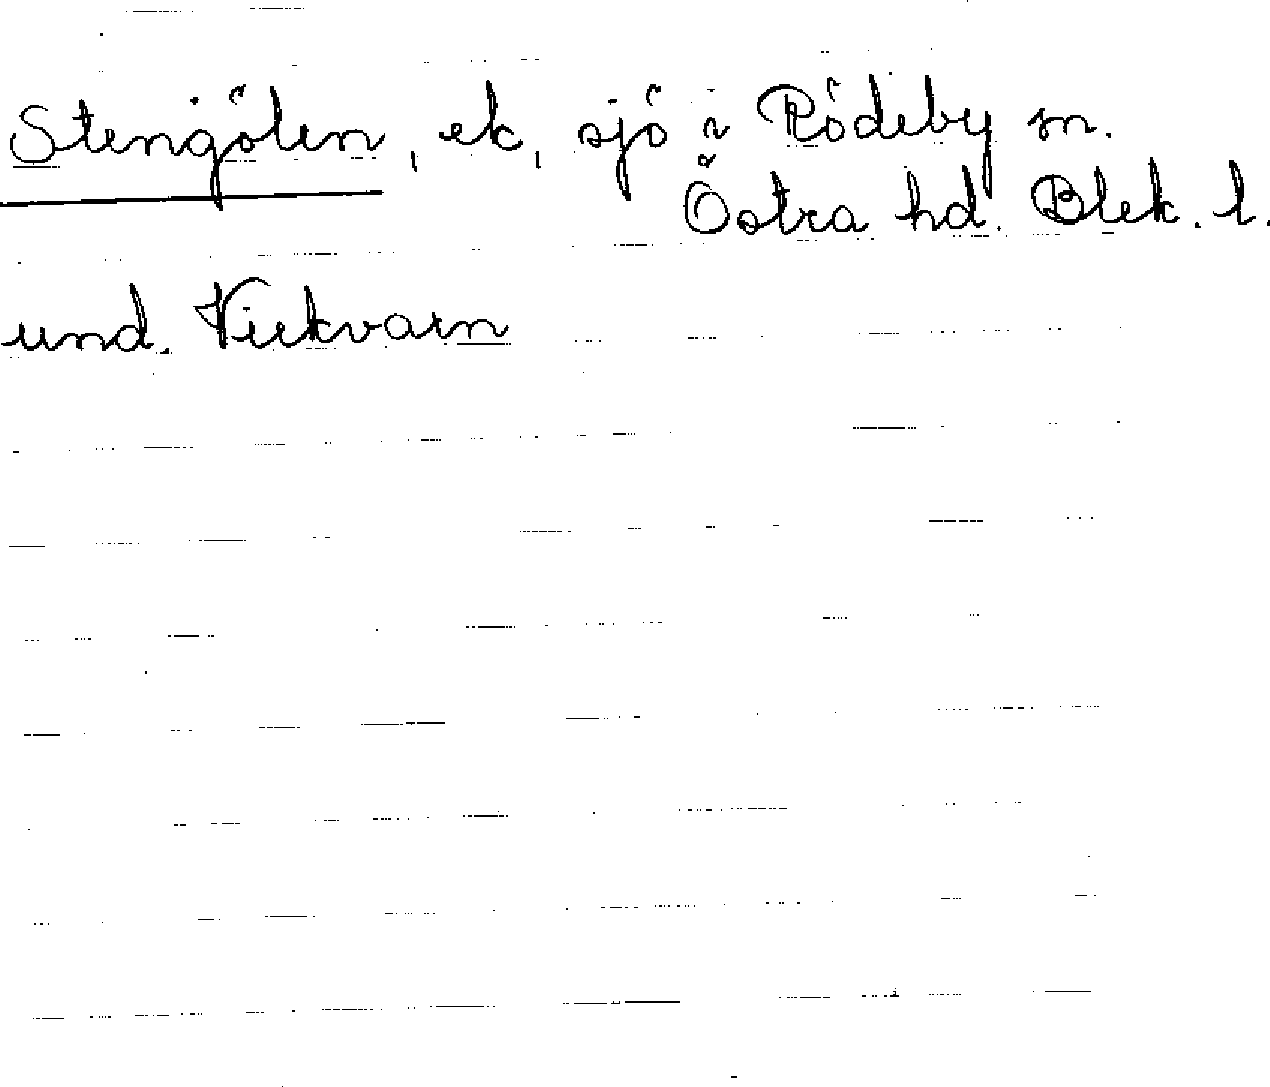 Stengölen, ek, sjö i Rödeby sn.
Östra hd. Blek. l.
und. Viekvarn